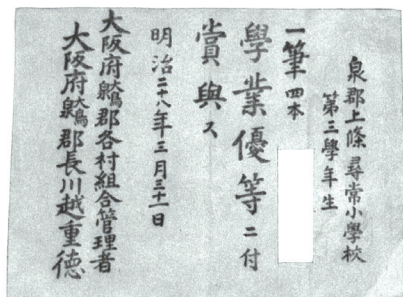 泉郡上條尋常小學校
第三學年生
一筆四本
學業優等ニ付
賞與ス
明治二十八年三月三十一日
大阪府大鳥泉郡各村組合管理者
大阪府大鳥泉郡長川越重徳